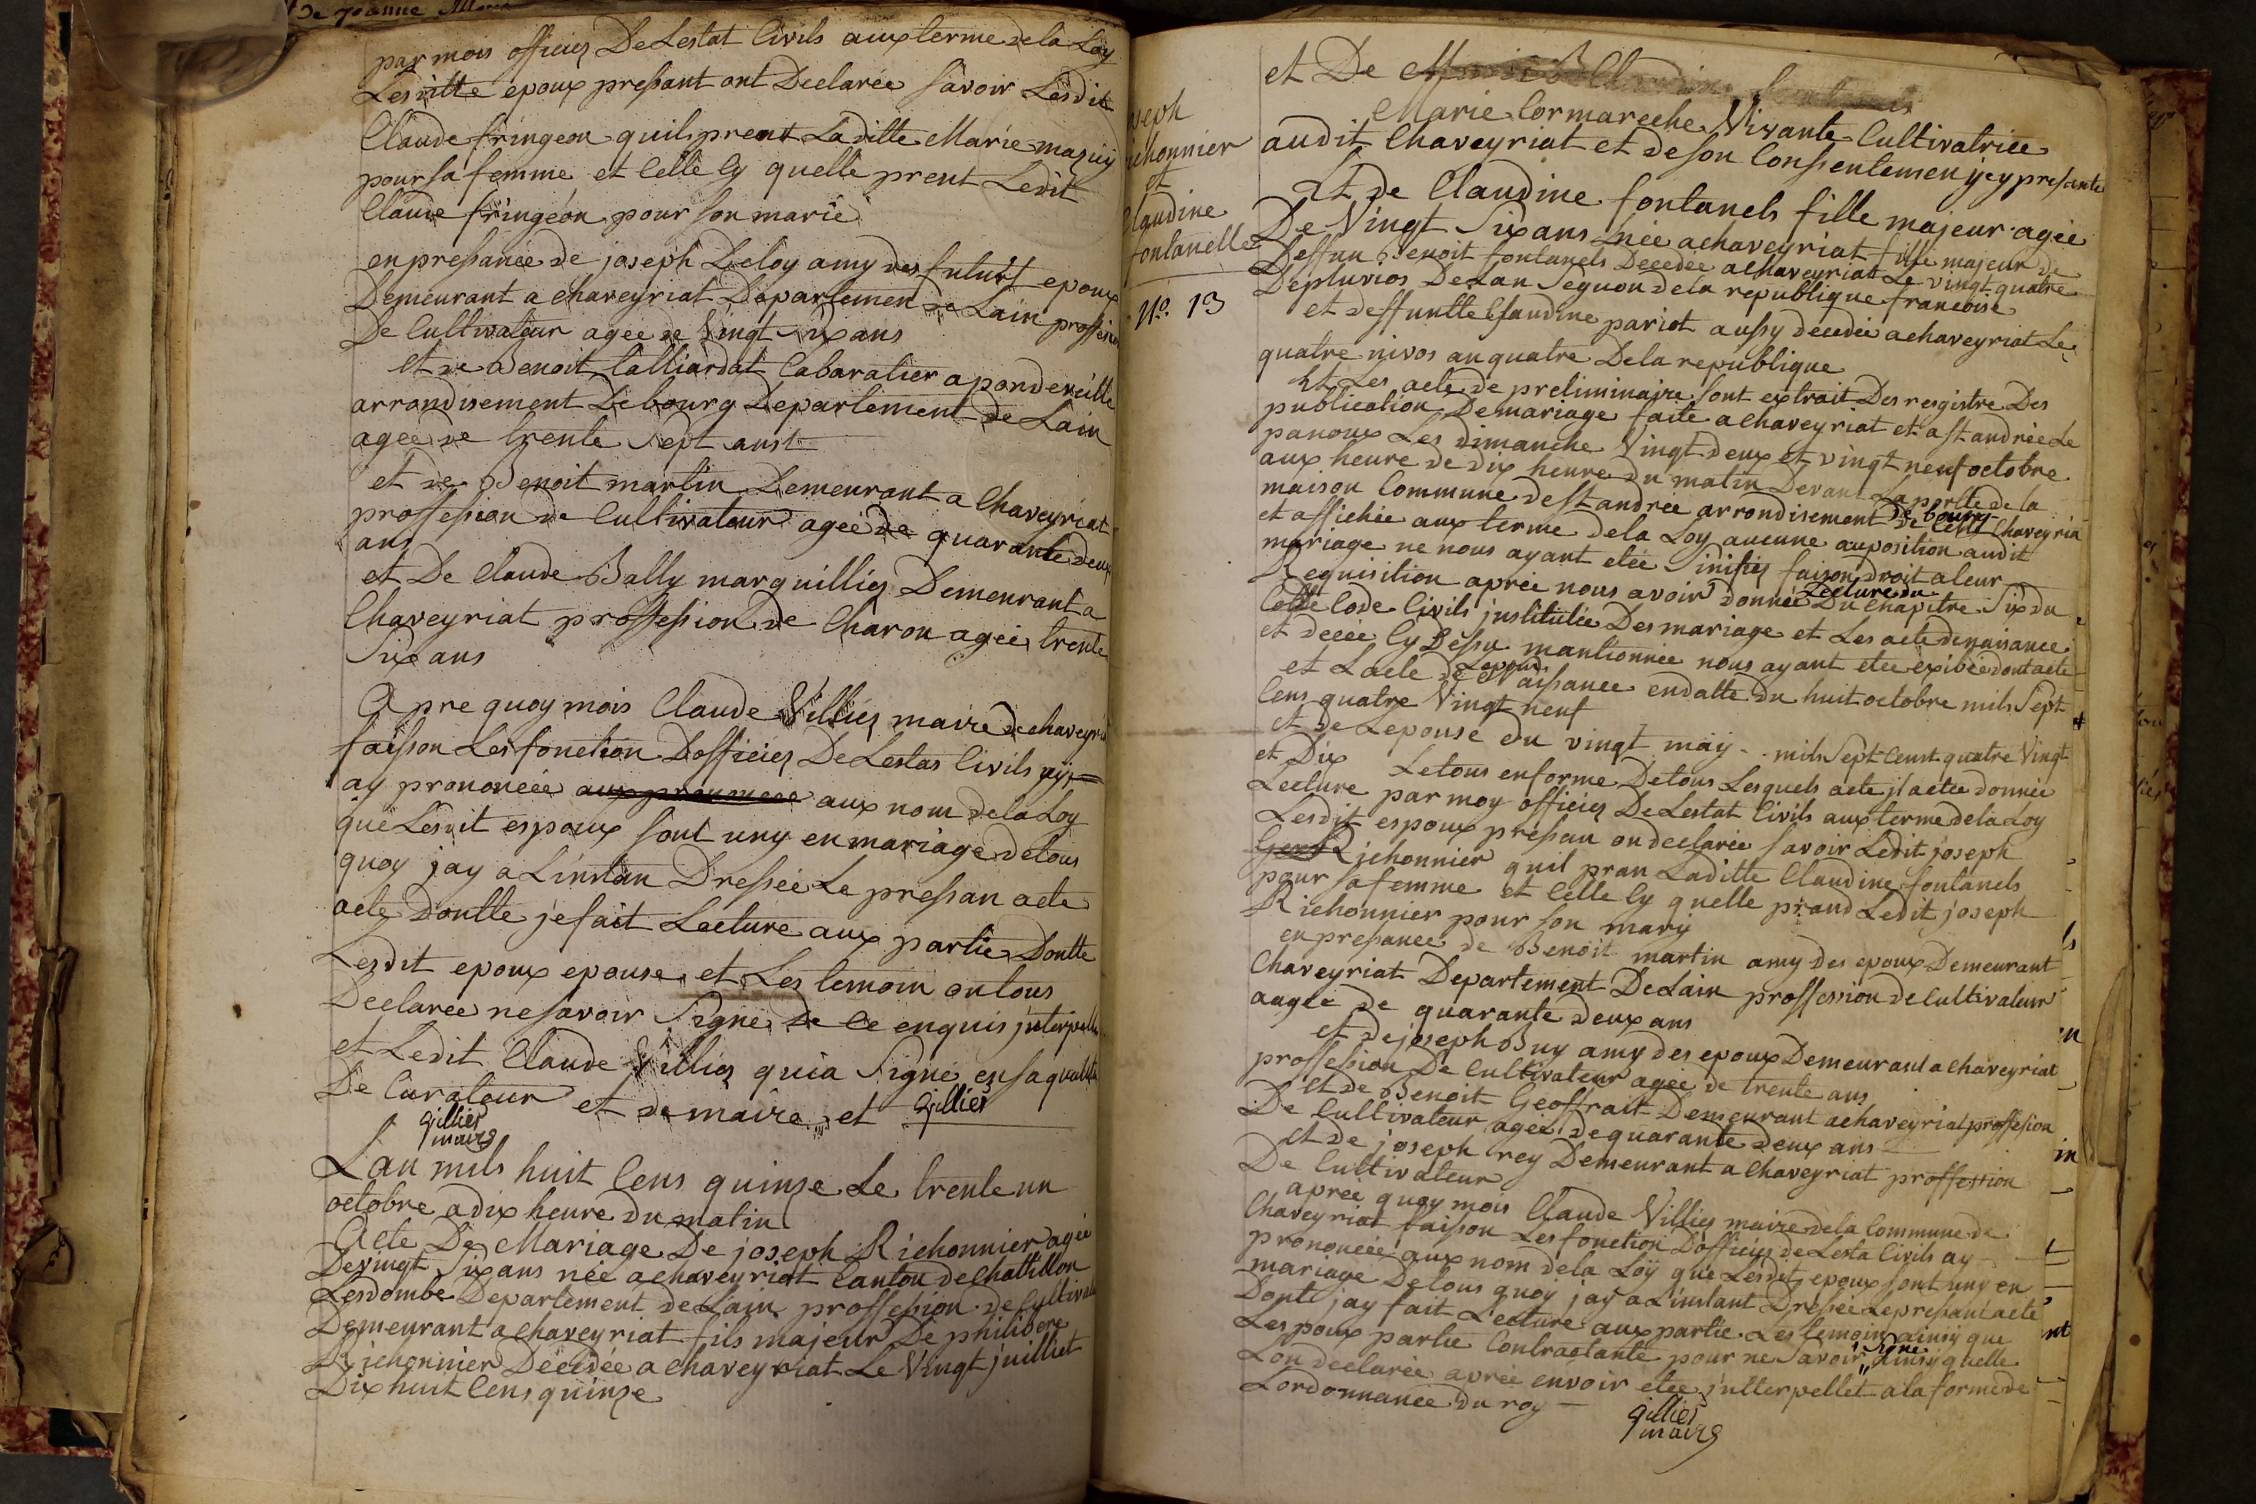 De jeanne
par mois officies De Lestat Civils aux terme de la Loy
Lesditte epoux pressant ont Declarée savoir Lesdit
Claude fringeon quils prent Laditte Marie maguy
pour sa femme et Celle Cy quelle prent Ledit
Claude fringeon pour son marié
en pressance de joseph Leloy amy des futurs epoux
Demeurant a Chaveyriat Departemen de Lain proffesion
De Cultivateur agée de Vingt Six ans
et de Benoit Calliardat Cabaratier a pondeveille
arrondisement De bourg Departement de Lain
agee de trente Sept anst
et de Benoit martin Demeurant a Chaveyriat
proffession de Cultivateur ageé de quarante deux
ans
et De Claude Bally marguillies Demeurant a
Chaveyriat proffession de Charon ageé trente
Six ans
Apre quoy mois Claude Villies maire de chaveyriat
faisson Les fonction Dofficies De Lestas Civils
ay prononcée aux prononcee aux nom de la Loy
que Lesdit espoux sont uny en mariage de tous
quoy jay a Linstan Dressée Le pressan acte
acte Doutte je fait Lecture aux partie Doutte
Lesdit epoux epouse et Les temoin on tous
Declarée ne savoir Signe de ce enquis jnterpelle
et Ledit Claude Villies qui a Signé en sa qualité
De Curateur et de maire et gillies
gillies
maire
Lan mils huit Cens quinze Le trente un
octobre a dix heure du matin
Acte De Mariage De joseph Richonnier agée
De vingt Six ans née a chaveyriat Canton de Chattillon
Lesdombe Departement de Lain proffession de Cultivateur
Demeurant a chaveyriat fils majeur De philibert
Richonnier Décedée a chaveyriat Le Vingt juilliet
Dix huit Cens quinze
oseph
ichonnier
et
Claudine
fontanelle
No. 13
et De
Marie Cormareche Vivante Cultivatrice
audit Chaveyriat et de son Consentemen jcy presante
Et de Claudine fontanels fille majeur agée
De Vingt Six ans née a chaveyriat fille majeur de
Deffun Benoit fontanels Decedée a chaveyriat Le vingt quatre
De pluvios De Lan Seguon de la republique francoise
et deffuntte Claudine pariot aussy decedée a chaveyriat Le
quatre nivos an quatre De la republique
Et Les acte de preliminaire sont extrait Des resgistre Des
publication De mariage faite a Chaveyriat et a st andrée Le
panoux Les dimanche Vingt deux et vingt neuf octobre
aux heure de dix heure du matin Devan La porte de la
maison Commune de st andrée arrondisement de bourg
et affichée aux terme de la Loy aucunne auposition audit
mariage ne nous ayant etée Sinifies faison droit a leur
Requisition aprée nous avoir donnée Lecture du Du Chapitre Six du
Code Civils jnstitulée Des mariage et Les acte de naisance
et decée Cy Dessu mantionnée nous ayant etée exibée dont acte
et Lacte de Lepoux Naissance en datte du huit octobre mils Sept
Cens quatre Vingt neuf
et de Lepouse du vingt may mils Sept Censt quatre Vingt
et Dix Le tous en forme De tous Lesquels acte jl a etee donnée
Lecture par moy officies De Lestat Civils aux terme de la Loy
Lesdit espoux pressan on declarée savoir Ledit joseph
Richonnier quil pran Laditte Claudine fontanels
pour sa femme et Celle Cy quelle prand Ledit joseph
Richonnier pour son mary
en pressance de Benoit martin amy des epoux Demeurant
Chaveyriat Departement De Lain proffession de Cultivateur
aagée de quarante deux ans
et de joseph Buy amy des epoux Demeurant a Chaveyriat
proffession De Cultivateur agée de trente ans
et de Benoit Geoffrait Demeurant a chaveyriat proffession
De Cultivateur agée de quarante deux ans
et de joseph rey Demeurant a Chaveyriat proffession
De Cultivateur
aprée quoy mois Claude Villies maire de la Commune de
Chaveyriat faisson Les fonction Dofficies de Lesta Civils ay
prononcée aux nom de la Loy que Lesdit epoux sont uny en
mariage De tous quoy jay a Linstant Dressée Le pressant acte
Dont jay fait Lecture aux partie Les temoin ainsy que
Les poux partie Contractante pour ne Savoir Signe ainsy quelle
Lon declarée avree envoir etee jntterpellet a la forme de
Lordonnance du roy
gillies
maire